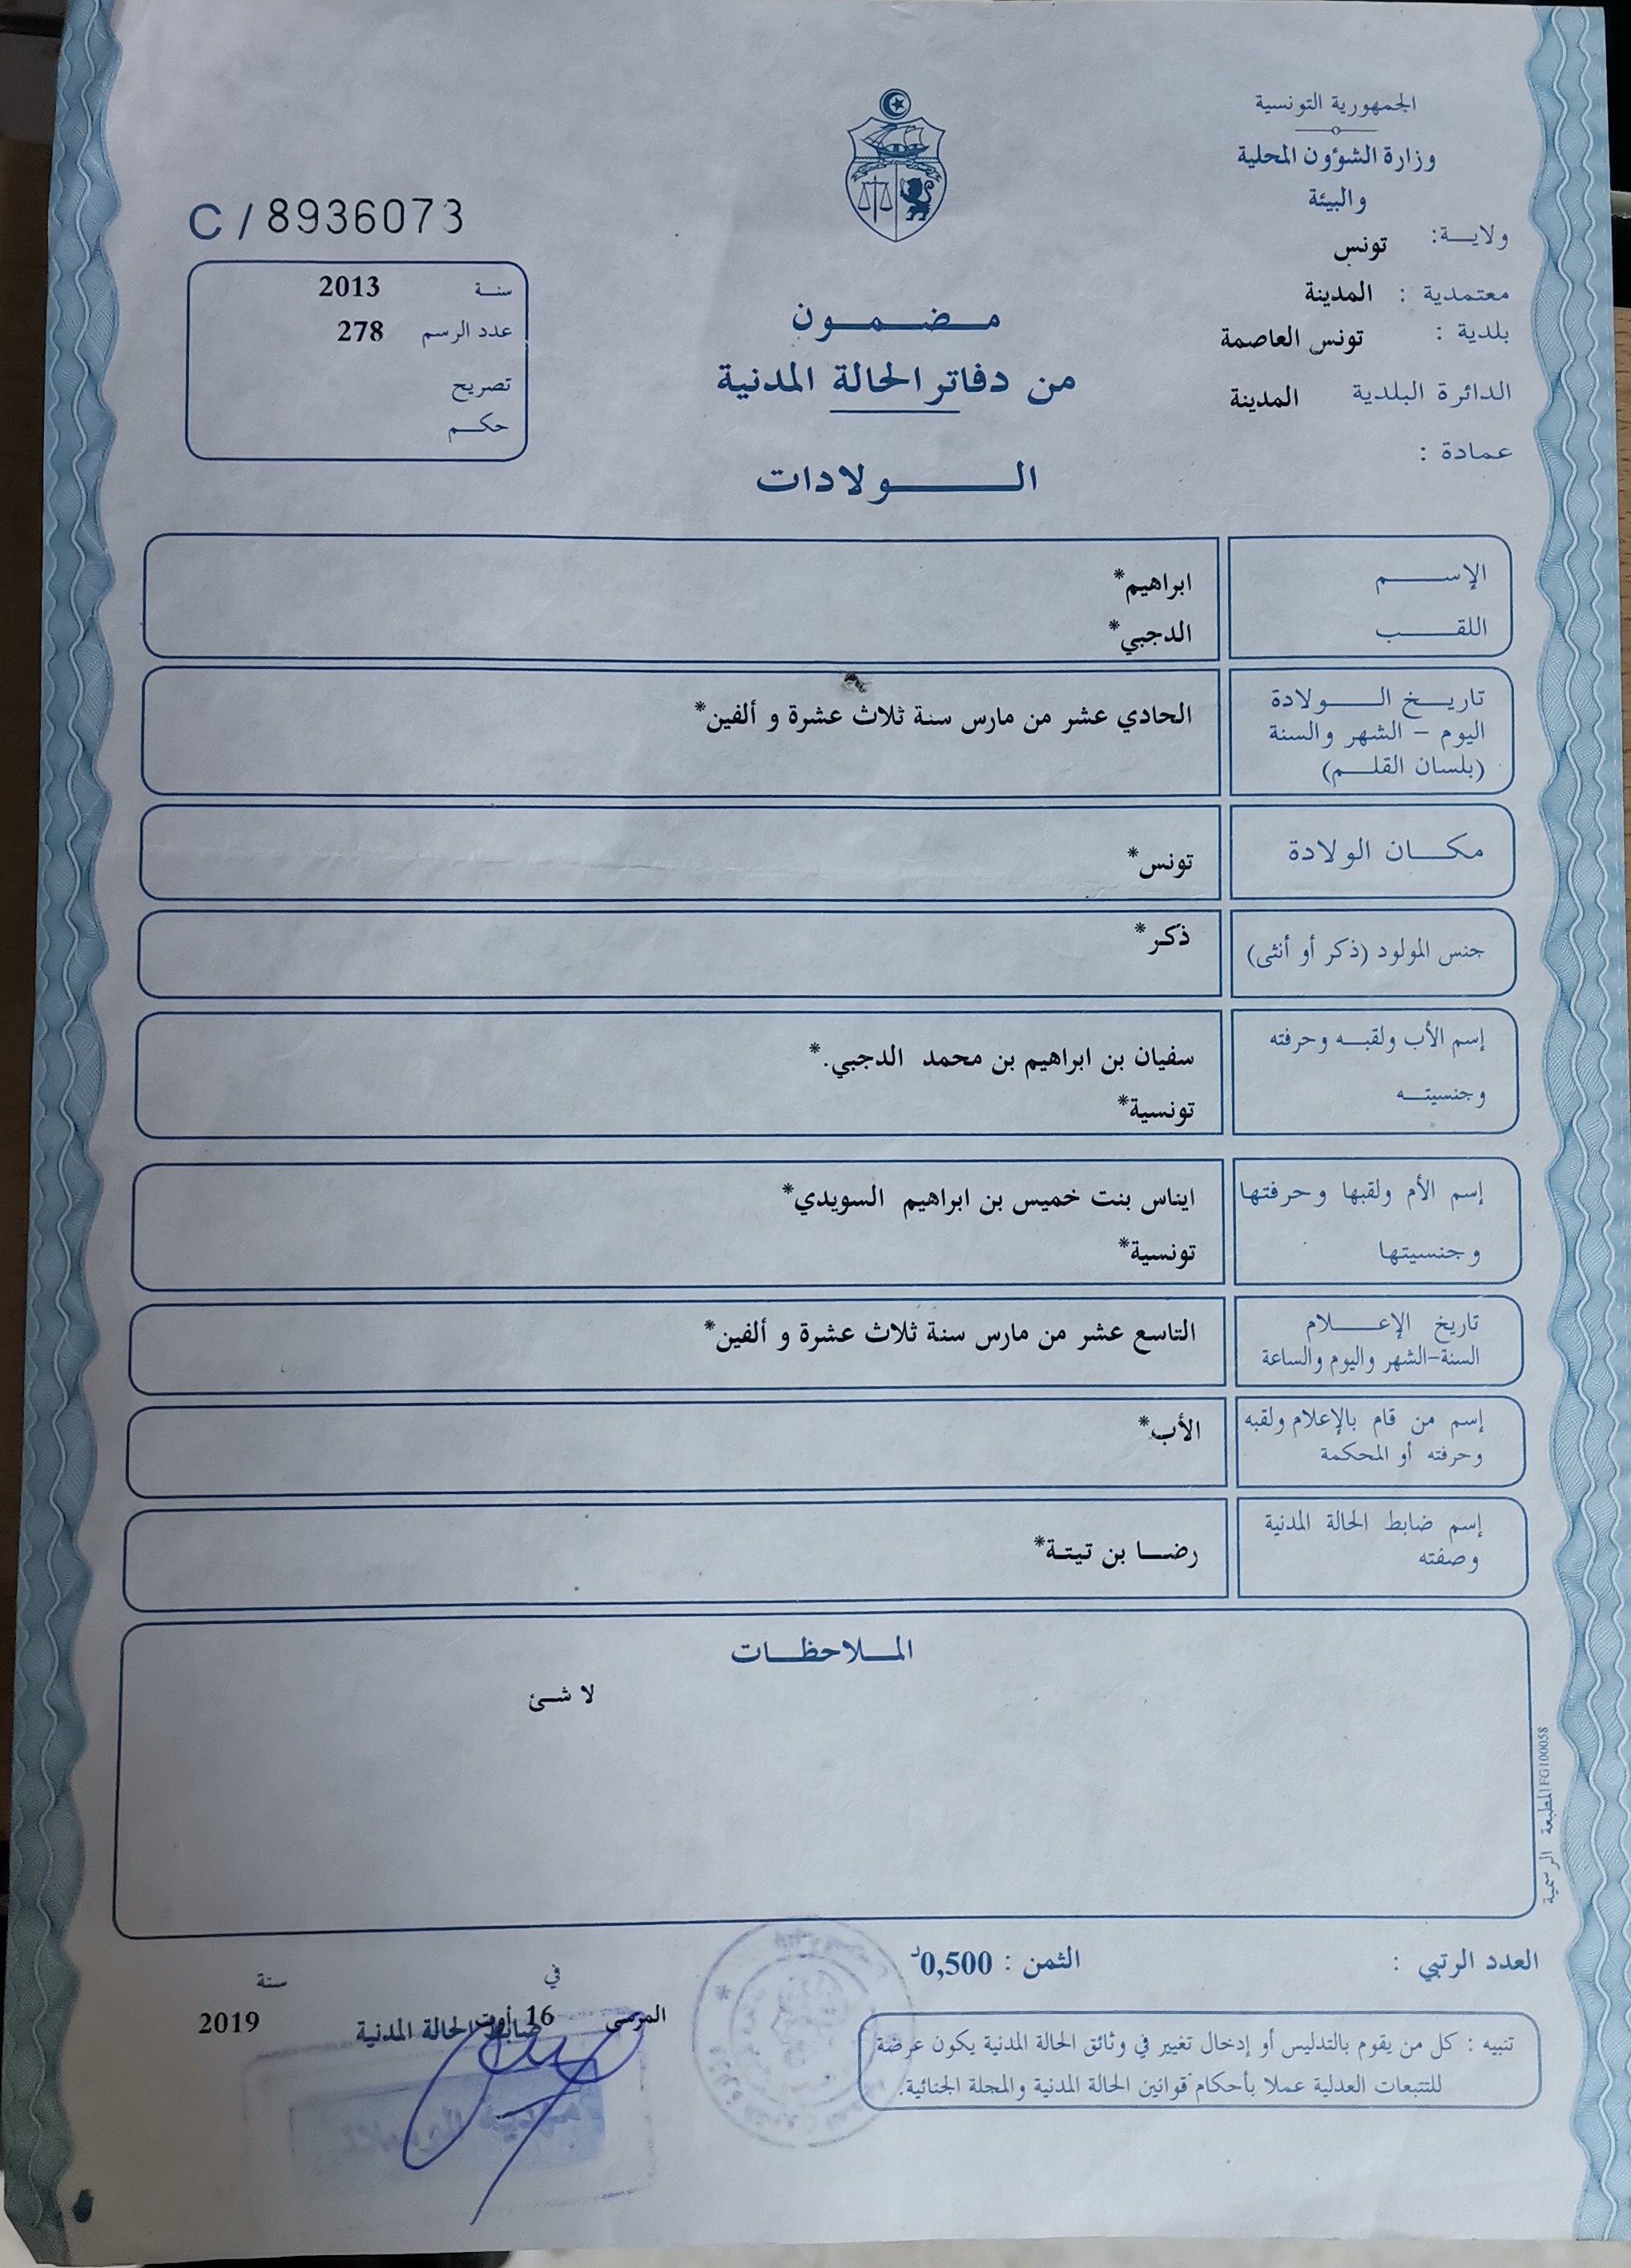 الجمهورية التونسية
وزارة الشؤون المحلية
والبيئة
ولايـــة: تونس
معتمدية : المدينة
بلدية : تونس العاصمة
الدائرة البلدية المدينة
عمادة :
C / 8936073
سنـة 2013
عدد الرسم 278
تصريح
حكـــم
مـــضـــمـــون
من دفاتر الحالة المدنية
الـــــولادات
الإســـــم ابراهيم*
اللقـــــب الدجبي*
تاريـــخ الـــــولادة
اليوم – الشهر والسنة
(بلسان القلـــم)
الحادي عشر من مارس سنة ثلاث عشرة و ألفين*
مكـــان الولادة تونس*
جنس المولود (ذكر أو أنثى) ذكر*
إسم الأب ولقبـــه وحرفته سفيان بن ابراهيم بن محمد الدجبي.*
وجنسيتـــه تونسية*
إسم الأم ولقبها وحرفتها ايناس بنت خميس بن ابراهيم السويدي*
وجنسيتها تونسية*
تاريخ الإعـــــلام
السنة-الشهر واليوم والساعة
التاسع عشر من مارس سنة ثلاث عشرة و ألفين*
إسم من قام بالإعلام ولقبه
وحرفته أو المحكمة
الأب*
إسم ضابط الحالة المدنية
وصفته
رضـــا بن تيتـة*
الملـــاحظـــات
لا شـــئ
المطبعة الرسمية FG100058
العدد الرتبي :
الثمن : 0,500د
المرسى في 16 أوت سنة 2019
ضابط الحالة المدنية
تنبيه : كل من يقوم بالتدليس أو إدخال تغيير في وثائق الحالة المدنية يكون عرضة
للتتبعات العدلية عملا بأحكام قوانين الحالة المدنية والمجلة الجنائية.